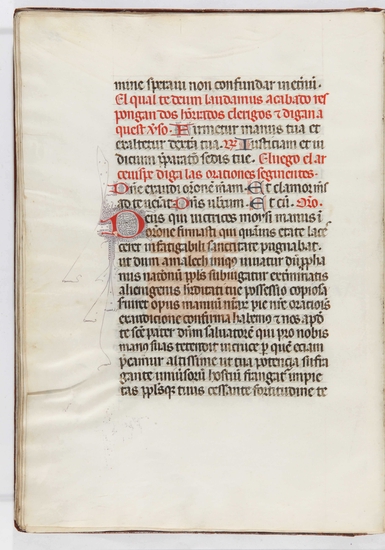 mine speraui non confundar in eternũ.
El qual te deum laudamus acabado res
pongan dos hõrrados clerigos ⁊ digan a
quest ṽso. Firmetur manus tua et
exaltetur dextra tua. R̃ Justiciam et iu
dicium p̃paratõ sedis tue. E luego el ar
cevispe diga las orationes seguentes.
Dñe exaudi oronẽ meam. Et clamor mẽs
ad te ueniat. Dñs uobiscum. Et cũ. Oro.
Deus qui uictrices moysi manus ĩ
orõne firmasti qui quãuis etate lace
ceret infatigabili sanctitate pugnabat.
ut dum amalech iniqs uincatur dũ p̃pha
nus nacionũ pp̃ls subiugatur exterminatis
alienigenis hr̃ditati tue possessio copiosa
seruiret opus manuũ nr̃ar pie nr̃e oracionis
exaudicione confirma habemꝰ ⁊ nos apd̃
te sc̃e pater dñm saluatorẽ qui pro nobis
manꝰ suas tetendit in cruce ꝑ quẽ eciam
p̃camur altissime ut tua potencia suffra
gante uniũsorũ hostiũ frangatr̃ impie
tas pp̃lsq̃ tuus cessante fortitudine te